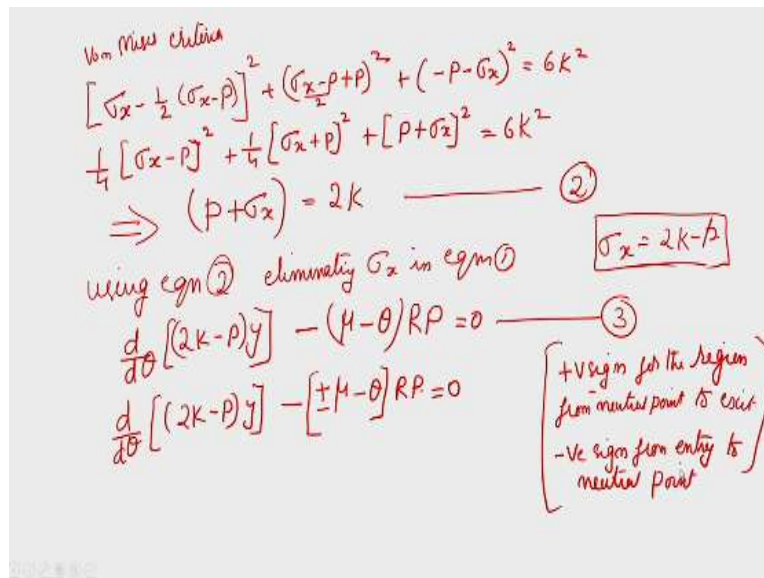 Von Mises criteria
[σx - 1/2 (σx-P)]² + (σx-P/2 + P)² + (-P-σx)² = 6K²
1/4 [σx-P]² + 1/4 [σx+P]² + [P+σx]² = 6K²
⇒ (P+σx) = 2K —— ②
σx = 2K-p
using eqn ② eliminatiy σx in eqm ①
d/dθ [(2K-P)y] - (μ-θ)RP = 0 —— ③
d/dθ [(2K-P)y] - [±μ-θ]RP = 0
+v sign for the region
from neutral point to exit
-ve sign from entry to
neutral point